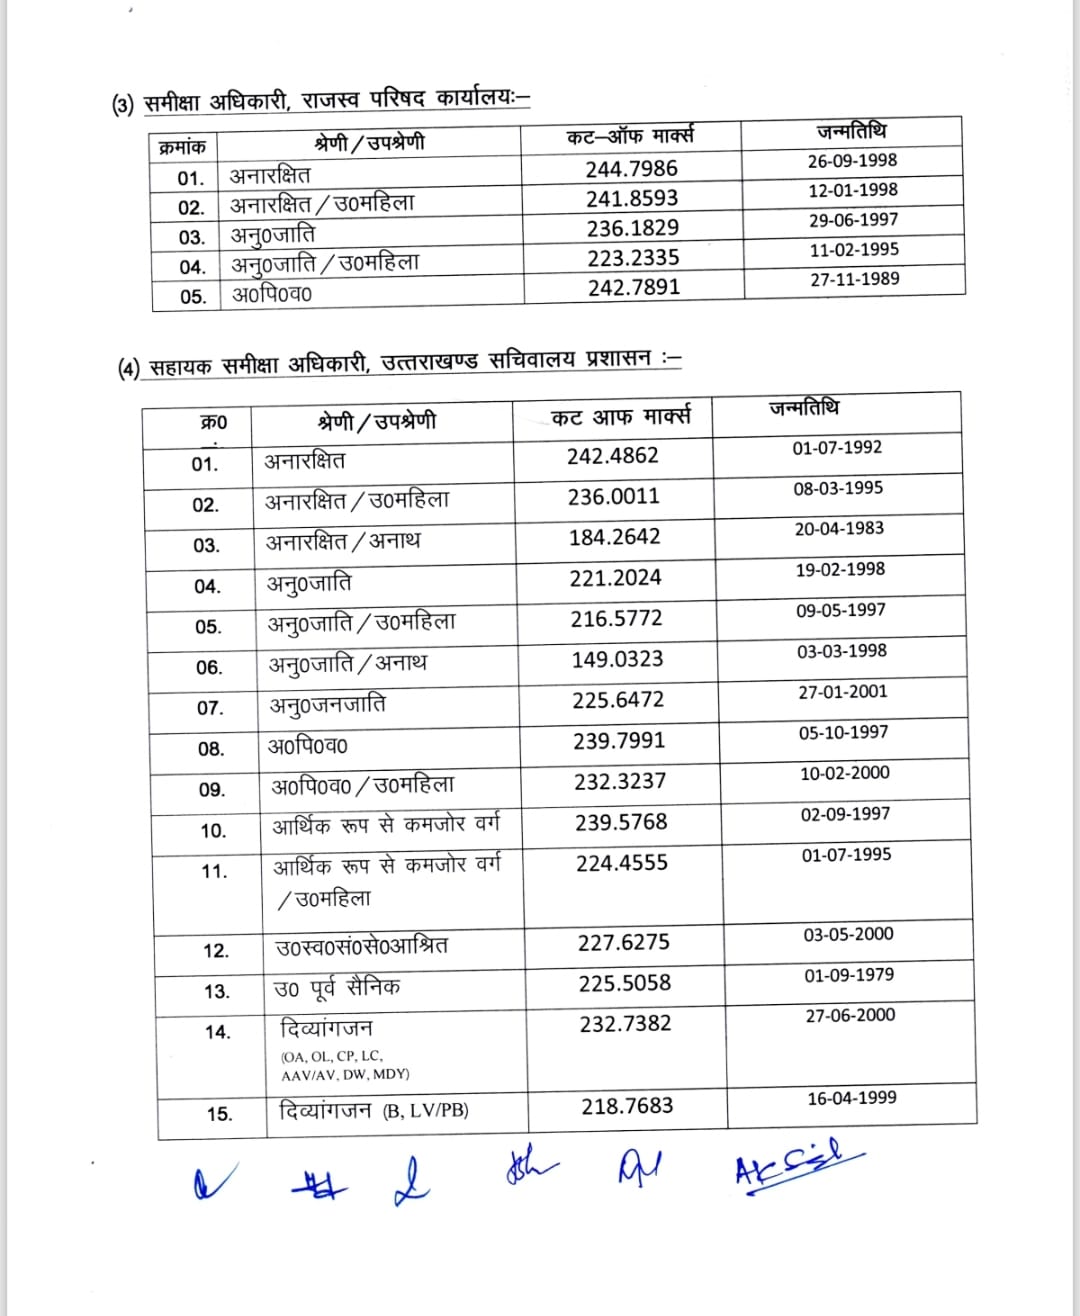 (3) समीक्षा अधिकारी, राजस्व परिषद कार्यालयः–
क्रमांक श्रेणी/उपश्रेणी कट–ऑफ मार्क्स जन्मतिथि
01. अनारक्षित 244.7986 26-09-1998
02. अनारक्षित/उ0महिला 241.8593 12-01-1998
03. अनु0जाति 236.1829 29-06-1997
04. अनु0जाति/उ0महिला 223.2335 11-02-1995
05. अ0पि0व0 242.7891 27-11-1989
(4) सहायक समीक्षा अधिकारी, उत्तराखण्ड सचिवालय प्रशासन :–
क्र0 श्रेणी/उपश्रेणी कट आफ मार्क्स जन्मतिथि
01. अनारक्षित 242.4862 01-07-1992
02. अनारक्षित/उ0महिला 236.0011 08-03-1995
03. अनारक्षित/अनाथ 184.2642 20-04-1983
04. अनु0जाति 221.2024 19-02-1998
05. अनु0जाति/उ0महिला 216.5772 09-05-1997
06. अनु0जाति/अनाथ 149.0323 03-03-1998
07. अनु0जनजाति 225.6472 27-01-2001
08. अ0पि0व0 239.7991 05-10-1997
09. अ0पि0व0/उ0महिला 232.3237 10-02-2000
10. आर्थिक रूप से कमजोर वर्ग 239.5768 02-09-1997
11. आर्थिक रूप से कमजोर वर्ग 224.4555 01-07-1995
/उ0महिला
12. उ0स्व0सं0से0आश्रित 227.6275 03-05-2000
13. उ0 पूर्व सैनिक 225.5058 01-09-1979
14. दिव्यांगजन 232.7382 27-06-2000
(OA, OL, CP, LC,
AAV/AV, DW, MDY)
15. दिव्यांगजन (B, LV/PB) 218.7683 16-04-1999